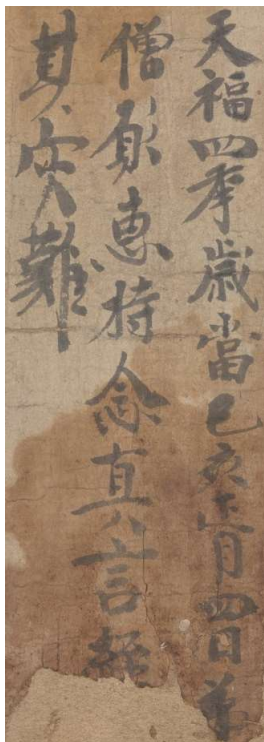 天福四年歲當己亥正月四日弟
僧願惠持念真言
其灾難